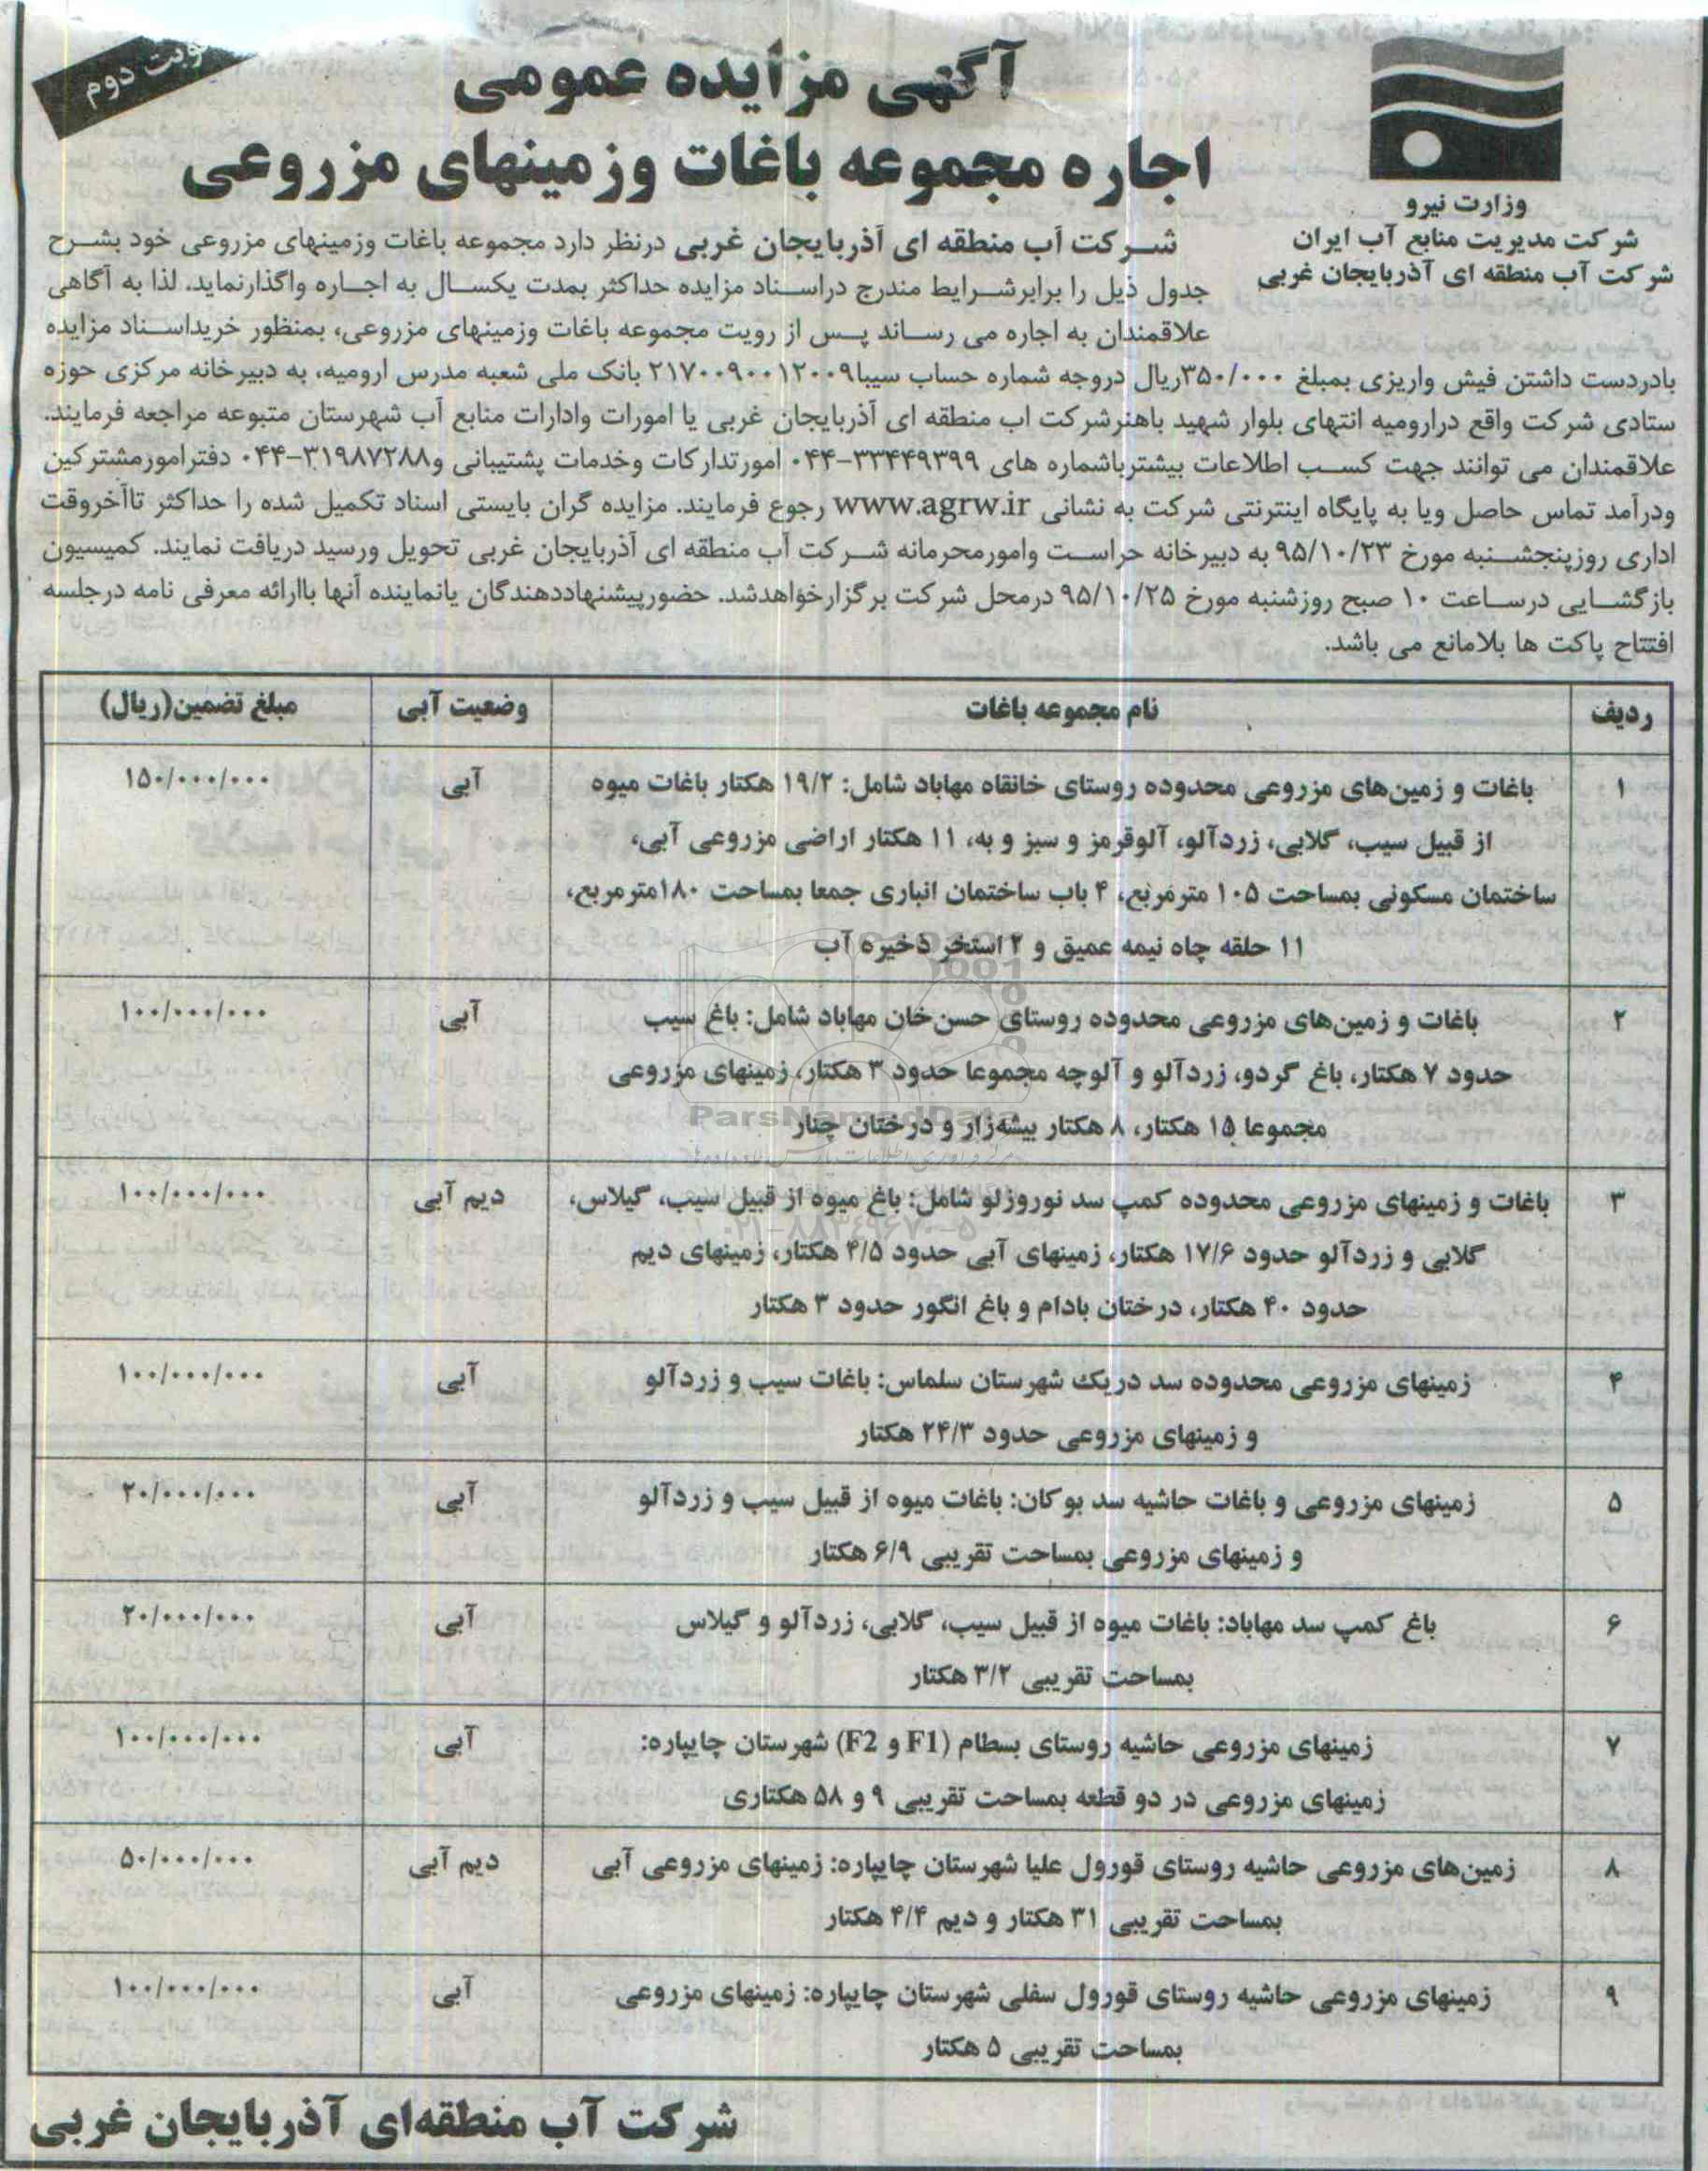 نوبت دوم
آگهی مزایده عمومی
اجاره مجموعه باغات وزمینهای مزروعی
وزارت نیرو
شرکت مدیریت منابع آب ایران
شرکت آب منطقه ای آذربایجان غربی
شرکت آب منطقه ای آذربایجان غربی درنظر دارد مجموعه باغات وزمینهای مزروعی خود بشرح
جدول ذیل را برابرشرایط مندرج دراسناد مزایده حداکثر بمدت یکسال به اجاره واگذارنماید. لذا به آگاهی
علاقمندان به اجاره می رساند پس از رویت مجموعه باغات وزمینهای مزروعی، بمنظور خریداسناد مزایده
بادردست داشتن فیش واریزی بمبلغ ۳۵۰/۰۰۰ریال دروجه شماره حساب سیبا۲۱۷۰۰۹۰۰۱۲۰۰۹ بانک ملی شعبه مدرس ارومیه، به دبیرخانه مرکزی حوزه
ستادی شرکت واقع درارومیه انتهای بلوار شهید باهنرشرکت اب منطقه ای آذربایجان غربی یا امورات وادارات منابع آب شهرستان متبوعه مراجعه فرمایند.
علاقمندان می توانند جهت کسب اطلاعات بیشترباشماره های ۳۳۴۴۹۳۹۹-۰۴۴ امورتدارکات وخدمات پشتیبانی و۳۱۹۸۷۲۸۸-۰۴۴ دفترامورمشترکین
ودرآمد تماس حاصل ویا به پایگاه اینترنتی شرکت به نشانی www.agrw.ir رجوع فرمایند. مزایده گران بایستی اسناد تکمیل شده را حداکثر تاآخروقت
اداری روزپنجشنبه مورخ ۹۵/۱۰/۲۳ به دبیرخانه حراست وامورمحرمانه شرکت آب منطقه ای آذربایجان غربی تحویل ورسید دریافت نمایند. کمیسیون
بازگشایی درساعت ۱۰ صبح روزشنبه مورخ ۹۵/۱۰/۲۵ درمحل شرکت برگزارخواهدشد. حضورپیشنهاددهندگان یانماینده آنها باارائه معرفی نامه درجلسه
افتتاح پاکت ها بلامانع می باشد.
ردیف نام مجموعه باغات وضعیت آبی مبلغ تضمین(ریال)
۱ باغات و زمین‌های مزروعی محدوده روستای خانقاه مهاباد شامل: ۱۹/۲ هکتار باغات میوه آبی ۱۵۰/۰۰۰/۰۰۰
از قبیل سیب، گلابی، زردآلو، آلوقرمز و سبز و به، ۱۱ هکتار اراضی مزروعی آبی،
ساختمان مسکونی بمساحت ۱۰۵ مترمربع، ۴ باب ساختمان انباری جمعا بمساحت ۱۸۰مترمربع،
۱۱ حلقه چاه نیمه عمیق و ۲ استخر ذخیره آب
۲ باغات و زمین‌های مزروعی محدوده روستای حسن‌خان مهاباد شامل: باغ سیب آبی ۱۰۰/۰۰۰/۰۰۰
حدود ۷ هکتار، باغ گردو، زردآلو و آلوچه مجموعا حدود ۳ هکتار، زمینهای مزروعی
مجموعا ۱۵ هکتار، ۸ هکتار بیشه‌زار و درختان چنار
ParsNamadData
۳ باغات و زمینهای مزروعی محدوده کمپ سد نوروزلو شامل: باغ میوه از قبیل سیب، گیلاس، دیم آبی ۱۰۰/۰۰۰/۰۰۰
۰۲۱-۸۸۳۴۹۶۷۰-۵
گلابی و زردآلو حدود ۱۷/۶ هکتار، زمینهای آبی حدود ۴/۵ هکتار، زمینهای دیم
حدود ۴۰ هکتار، درختان بادام و باغ انگور حدود ۳ هکتار
۴ زمینهای مزروعی محدوده سد دریک شهرستان سلماس: باغات سیب و زردآلو آبی ۱۰۰/۰۰۰/۰۰۰
و زمینهای مزروعی حدود ۲۴/۳ هکتار
۵ زمینهای مزروعی و باغات حاشیه سد بوکان: باغات میوه از قبیل سیب و زردآلو آبی ۲۰/۰۰۰/۰۰۰
و زمینهای مزروعی بمساحت تقریبی ۶/۹ هکتار
۶ باغ کمپ سد مهاباد: باغات میوه از قبیل سیب، گلابی، زردآلو و گیلاس آبی ۲۰/۰۰۰/۰۰۰
بمساحت تقریبی ۳/۲ هکتار
۷ زمینهای مزروعی حاشیه روستای بسطام (F1 و F2) شهرستان چایپاره: آبی ۱۰۰/۰۰۰/۰۰۰
زمینهای مزروعی در دو قطعه بمساحت تقریبی ۹ و ۵۸ هکتاری
۸ زمین‌های مزروعی حاشیه روستای قورول علیا شهرستان چایپاره: زمینهای مزروعی آبی دیم آبی ۵۰/۰۰۰/۰۰۰
بمساحت تقریبی ۳۱ هکتار و دیم ۴/۴ هکتار
۹ زمینهای مزروعی حاشیه روستای قورول سفلی شهرستان چایپاره: زمینهای مزروعی آبی ۱۰۰/۰۰۰/۰۰۰
بمساحت تقریبی ۵ هکتار
شرکت آب منطقه‌ای آذربایجان غربی